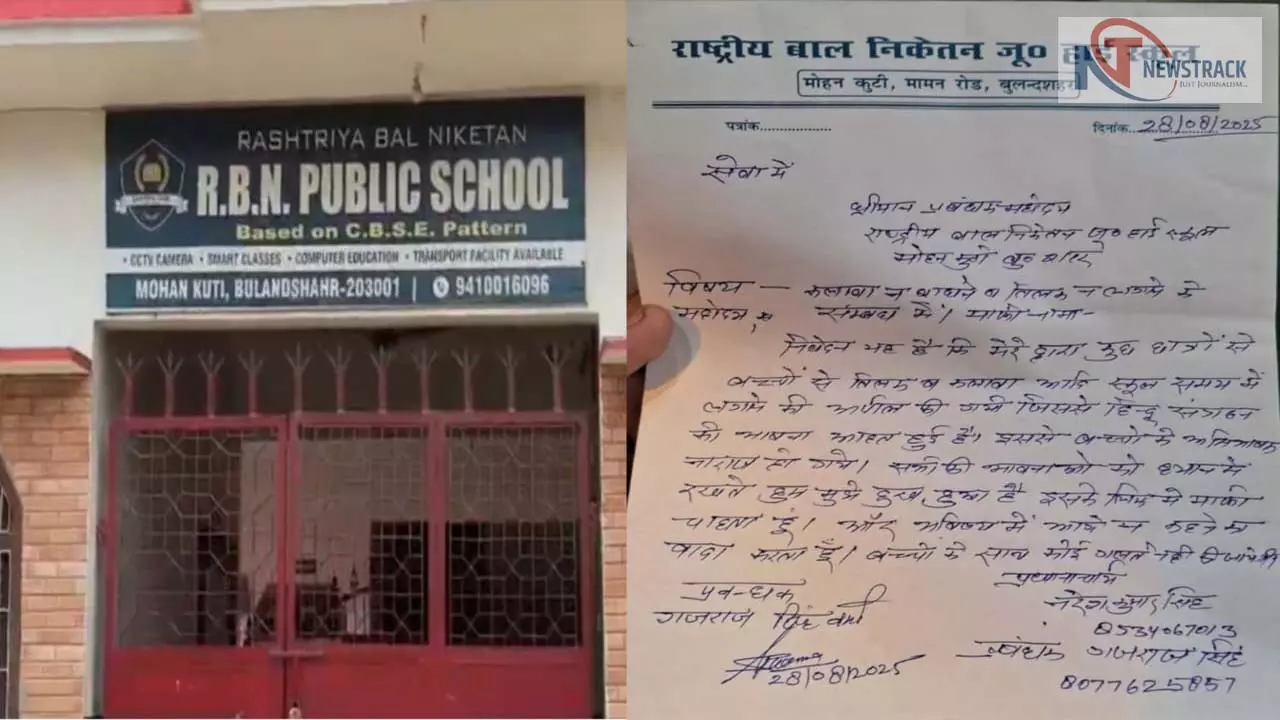 RASHTRIYA BAL NIKETAN
R.B.N. PUBLIC SCHOOL
Based on C.B.S.E. Pattern
• CCTV CAMERA • SMART CLASSES • COMPUTER EDUCATION • TRANSPORT FACILITY AVAILABLE
MOHAN KUTI, BULANDSHAHR-203001 | 9410016096
NEWSTRACK
JUST JOURNALISM...
राष्ट्रीय बाल निकेतन जू० हाई स्कूल
मोहन कुटी, मामन रोड, बुलन्दशहर
पत्रांक.................
दिनांक...28/08/2025
सेवा में
श्रीमान प्रबंधक महोदय
राष्ट्रीय बाल निकेतन जू० हाई स्कूल
मोहन कुटी
विषय — कलावा न बांधने व तिलक न लगाने के
महोदय, सम्बंध में। माफीनामा-
निवेदन यह है कि मेरे द्वारा कुछ छात्रों से
बच्चों से तिलक व कलावा आदि स्कूल समय में
की अपील की गयी जिससे हिन्दू संगठन
की भावना आहत हुई है। इससे बच्चों के अभिभावक
नाराज हो गये। सभी की भावनाओं को ध्यान में
रखते हुए मुझे दुख हुआ है इसके लिए मैं माफी
चाहता हूं। और भविष्य में आगे न कहने का
वादा करता हूँ। बच्चों के साथ कोई गलत नहीं
प्रधानाचार्य
प्रबन्धक
नरेश कुमार सिंह
गजराज सिंह
8534067013
प्रबंधक गजराज सिंह
28/08/2025
8077625857